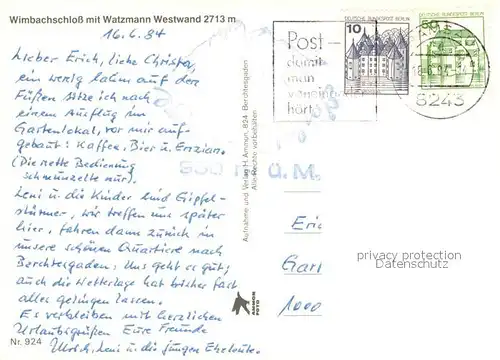 Wimbachschloß mit Watzmann Westwand 2713 m
16.6.84
Lieber Erich, liebe Christa,
ein wenig lahm auf den
Füßen sitze ich nach
einem Ausflug im
Gartenlokal, vor mir auf-
gebaut: Kaffee, Bier u. Enzian.
(Die nette Bedienung
schmunzelte nur).
Leni u. die Kinder sind Gipfel-
stürmer, wir treffen uns später
hier, fahren dann zurück in
unsere schönen Quartiere nach
Berchtesgaden. Uns geht es gut;
auch die Wetterlage hat bisher fast
alles gelingen lassen.
Es verbleiben mit herzlichen
Urlaubsgrüßen Eure Freunde
Ulrich, Leni u. die jungen Eheleute.
Nr. 924
Aufnahme und Verlag H. Ammon, 824 Berchtesgaden
Alle Rechte vorbehalten
AMMON
FOTO
Post-
damit
man
voneinander
hört
10
DEUTSCHE BUNDESPOST BERLIN
50
DEUTSCHE BUNDESPOST BERLIN
8243
ü. M.
Eric
Gart
1000
privacy protection
Datenschutz